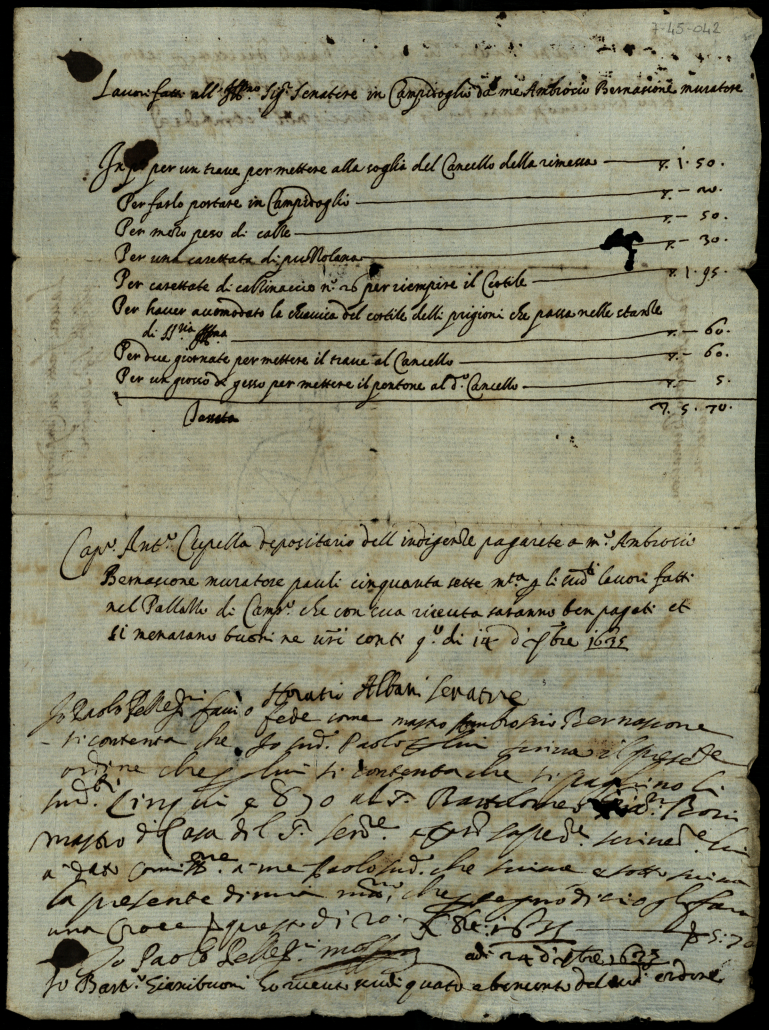 7-45-042
Lavori fatti all' Ill.mo Sig.r Senatore in Campidoglio da me Ambrosio Bernascione muratore
In p.o per un trave per mettere alla soglia del Cancello della rimessa — 1 · 50 ·
Per farlo portare in Campidoglio — 20 ·
Per mezo peso di calce — 50 ·
Per una carettata di puzzolana — 30 ·
Per carettate di calcinaccio n.o 26 per riempire il Cortile — 1 · 95 ·
Per haver accomodato la chiavica del cortile delli prigioni che passa nelle stanze
di S.Sria Ill.ma — 60 ·
Per due giornate per mettere il trave al Cancello — 60 ·
Per un grosso di gesso per mettere il pontone al d.o Cancello — 5 ·
5 · 70 ·
Cap.o Ant.o Cepella depositario dell' indigenze pagarete a m.o Ambrosio
Bernascione muratore pauli cinquanta sette m.ta p li sud.ti lavori fatti
nel Pallazzo di Camp.o che con sua riceuta saranno ben pagati et
si menarano buoni ne v.ri conti q.o di 14 d' 1635
Horatio Albani senatore
Io Paolo Pelleg.ni faccio fede come mastro Ambrosio Bernascone
si contenta che Io sud. Paolo p lui scriva il presente
ordine che p lui si contenta che si paghino li
sud.ti cinque e 70 al S. Bartolomeo Boni
mastro di Casa del S.
a me Paolo sud. che scriva e sotto scriva
la presente di mia mano, che
una Croce questo di 20 · 1635 — 5:70
Io Paolo Pelleg.ni
adi 24 d' 1635
Io Bart.o Gianibuoni ho riceuto scudi quatro a bonconto del sud.o ordine